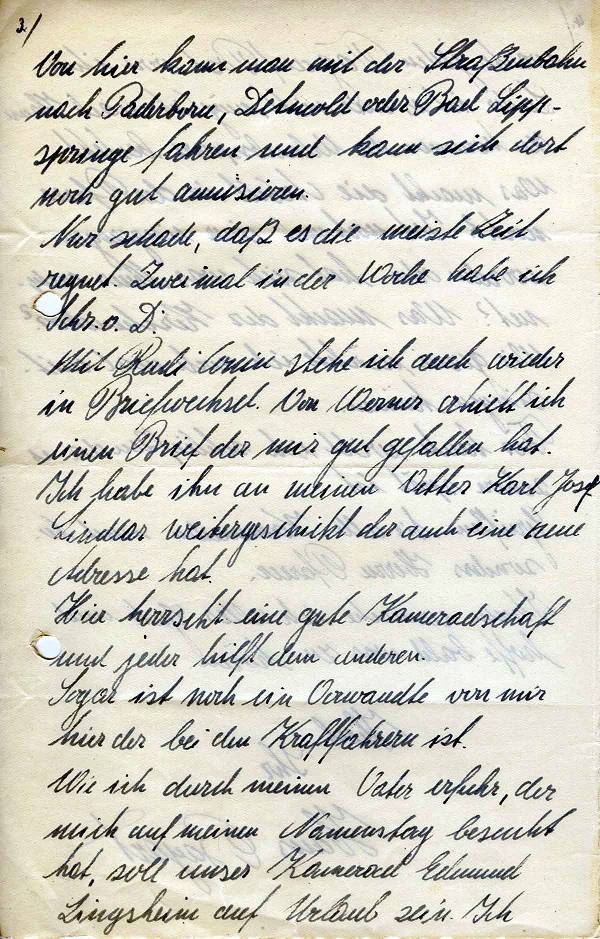 3/
Von hier kann man mit der Straßenbahn
nach Paderborn, Detmold oder Bad Lipp-
springe fahren und kann sich dort
noch gut amüsieren.
Nur schade, daß es die meiste Zeit
regnet. Zweimal in der Woche habe ich
v. D.
Mit Rudi stehe ich auch wieder
in Briefwechsel. Von Werner erhielt ich
einen Brief der mir gut gefallen hat.
Ich habe ihn an meinen Vetter Karl Josef
Lindlar weitergeschickt der auch eine neue
Adresse hat.
Hier herrscht eine gute Kameradschaft
und jeder hilft dem anderen.
Sogar ist noch ein Verwandte von mir
hier der bei den Kraftfahrern ist.
Wie ich durch meinen Vater erfuhr, der
mich auf meinen Namenstag besucht
hat, soll unser Kamerad Edmund
Lingsheim auf Urlaub sein. Ich